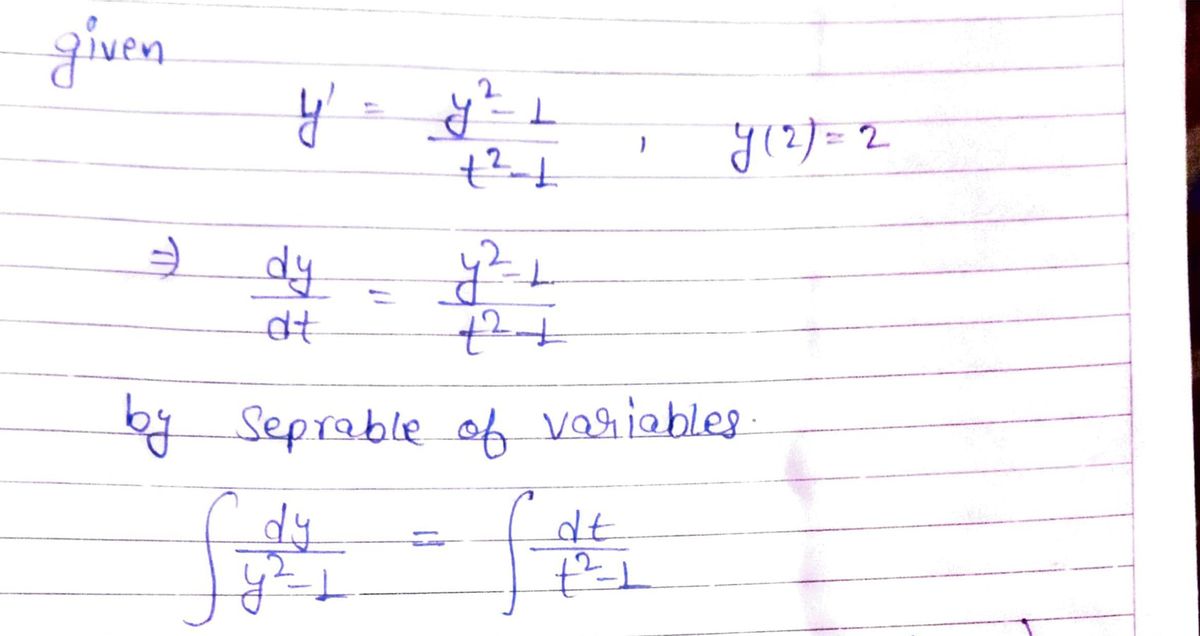 given
y' = y²-1 / t²-1 , y(2) = 2
⇒ dy/dt = y²-1 / t²-1
by Seprable of variables.
∫ dy / y²-1 = ∫ dt / t²-1